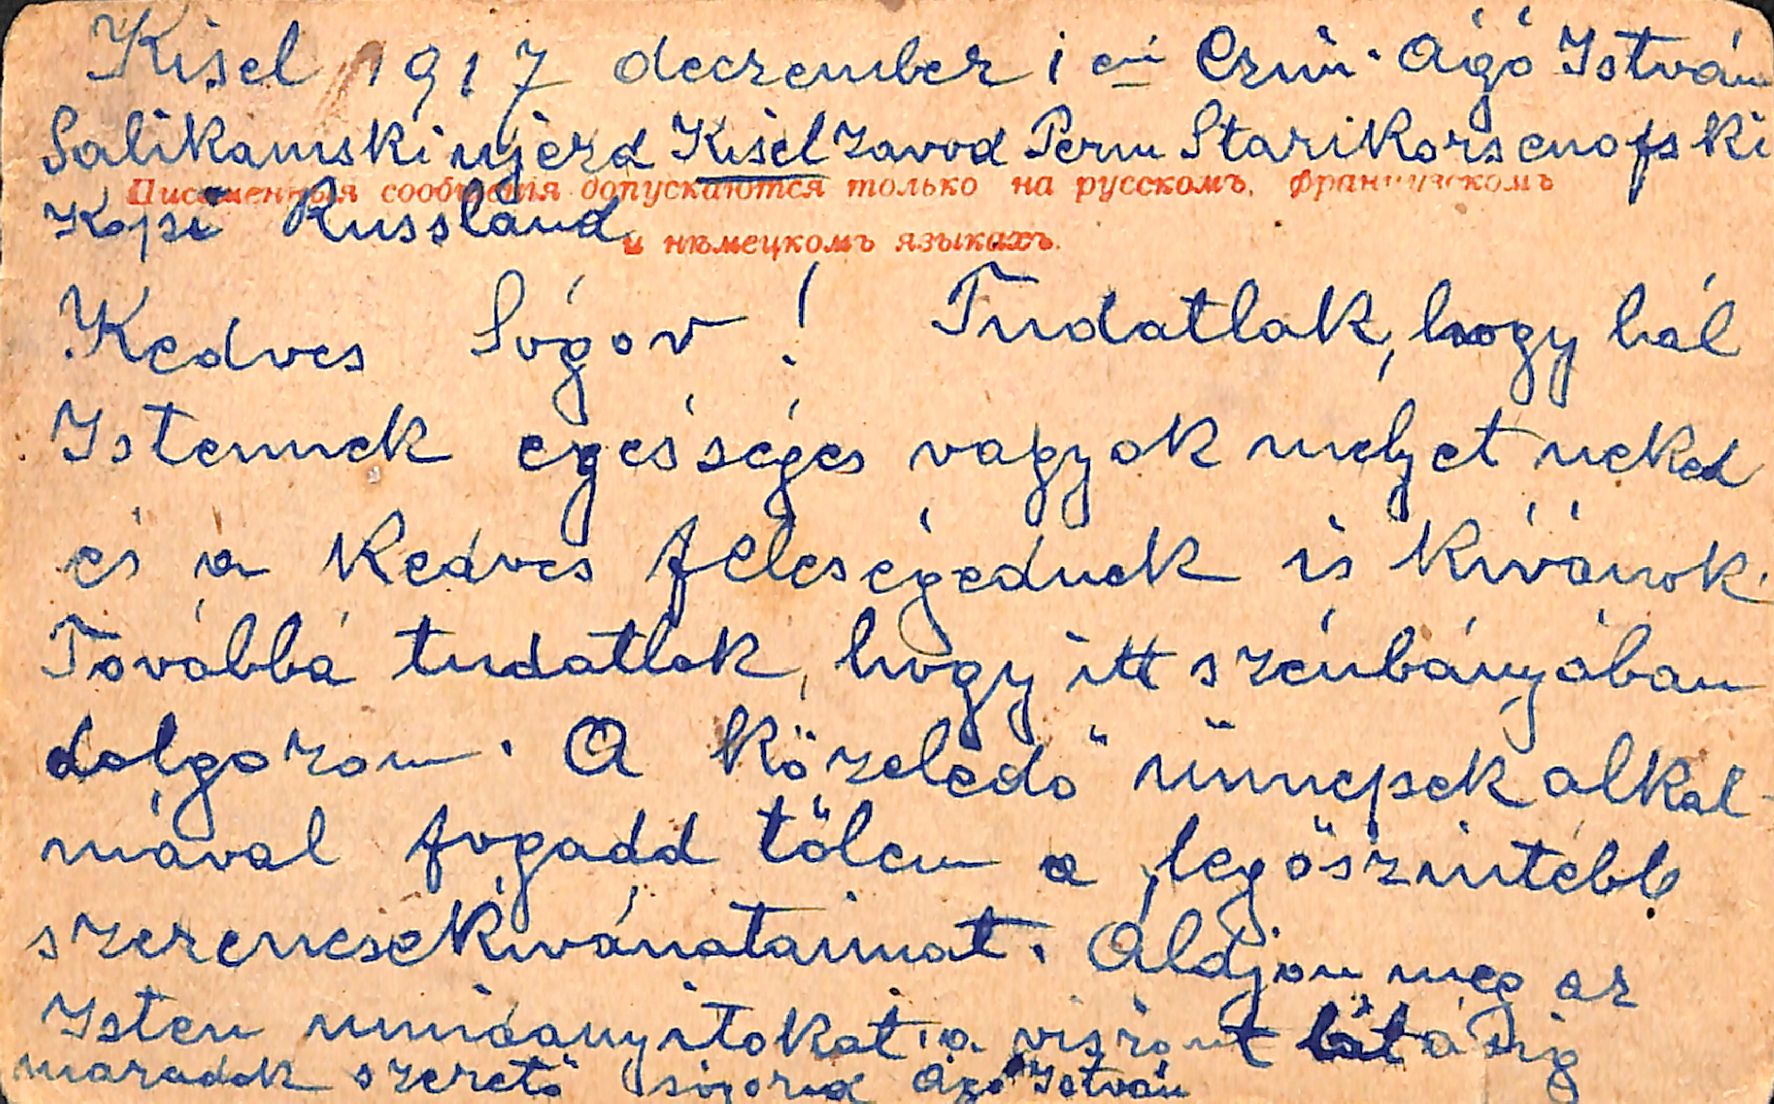 Kisel 1917 deczember 1 én Czím. Ágó István
Salikamski ujezd Kisel zavod Perm Starikorsenofski
Писменныя сообщенія допускаются только на русскомъ, французскомъ
Kopi Russland
и нѣмецкомъ языкахъ.
Kedves Sógor! Tudatlak, hogy hál
Istennek egésséges vagyok melyet neked
és a kedves feleségednek is kívánok.
Továbbá tudatlak, hogy itt szénbányában
dolgozom. A közeledő ünnepek alkal-
mával fogadd tőlem a legöszintébb
szerencsekívánataimat. Áldjon meg az
Isten mindanyitokat, a viszont látásig
maradok szerető sógorod Ágó István